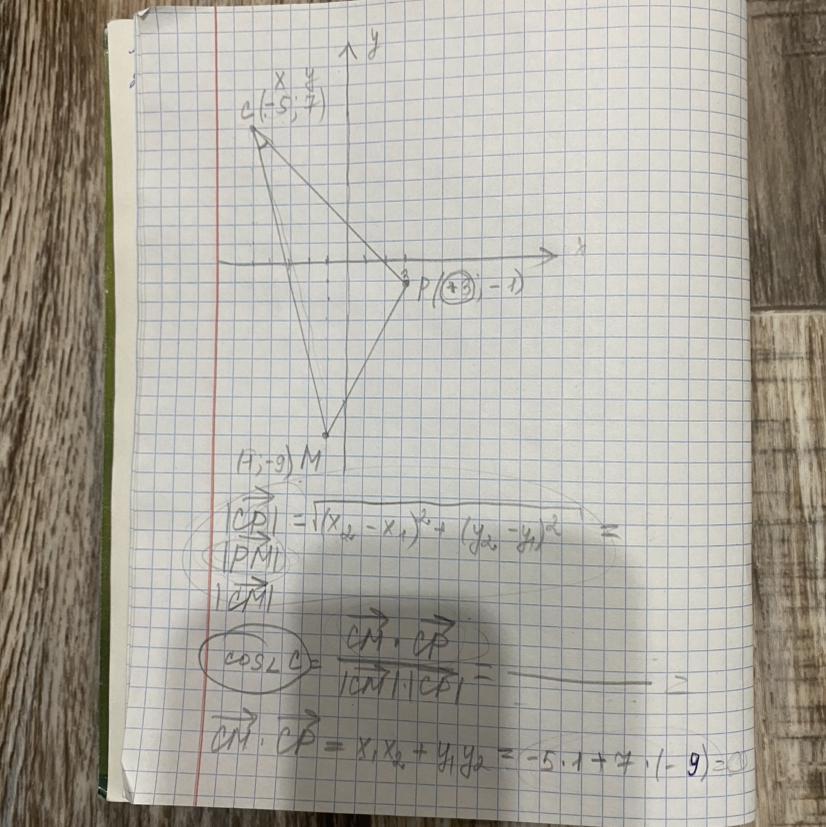 y
x y
C(-5; 7)
x
3
P(+3; -1)
; -9) M
|CP| = √(x₂ - x₁)² + (y₂ - y₁)² =
|PM|
|CM|
cos∠C = CM · CP / |CM|·|CP| = ———— =
CM · CP = x₁x₂ + y₁y₂ = -5·1 + 7·(-9) =